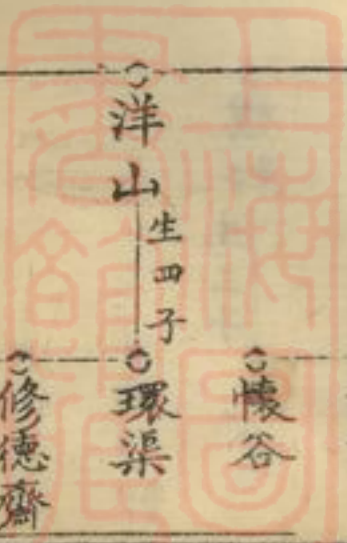 洋山
生四子
懷谷
環渠
修德齋